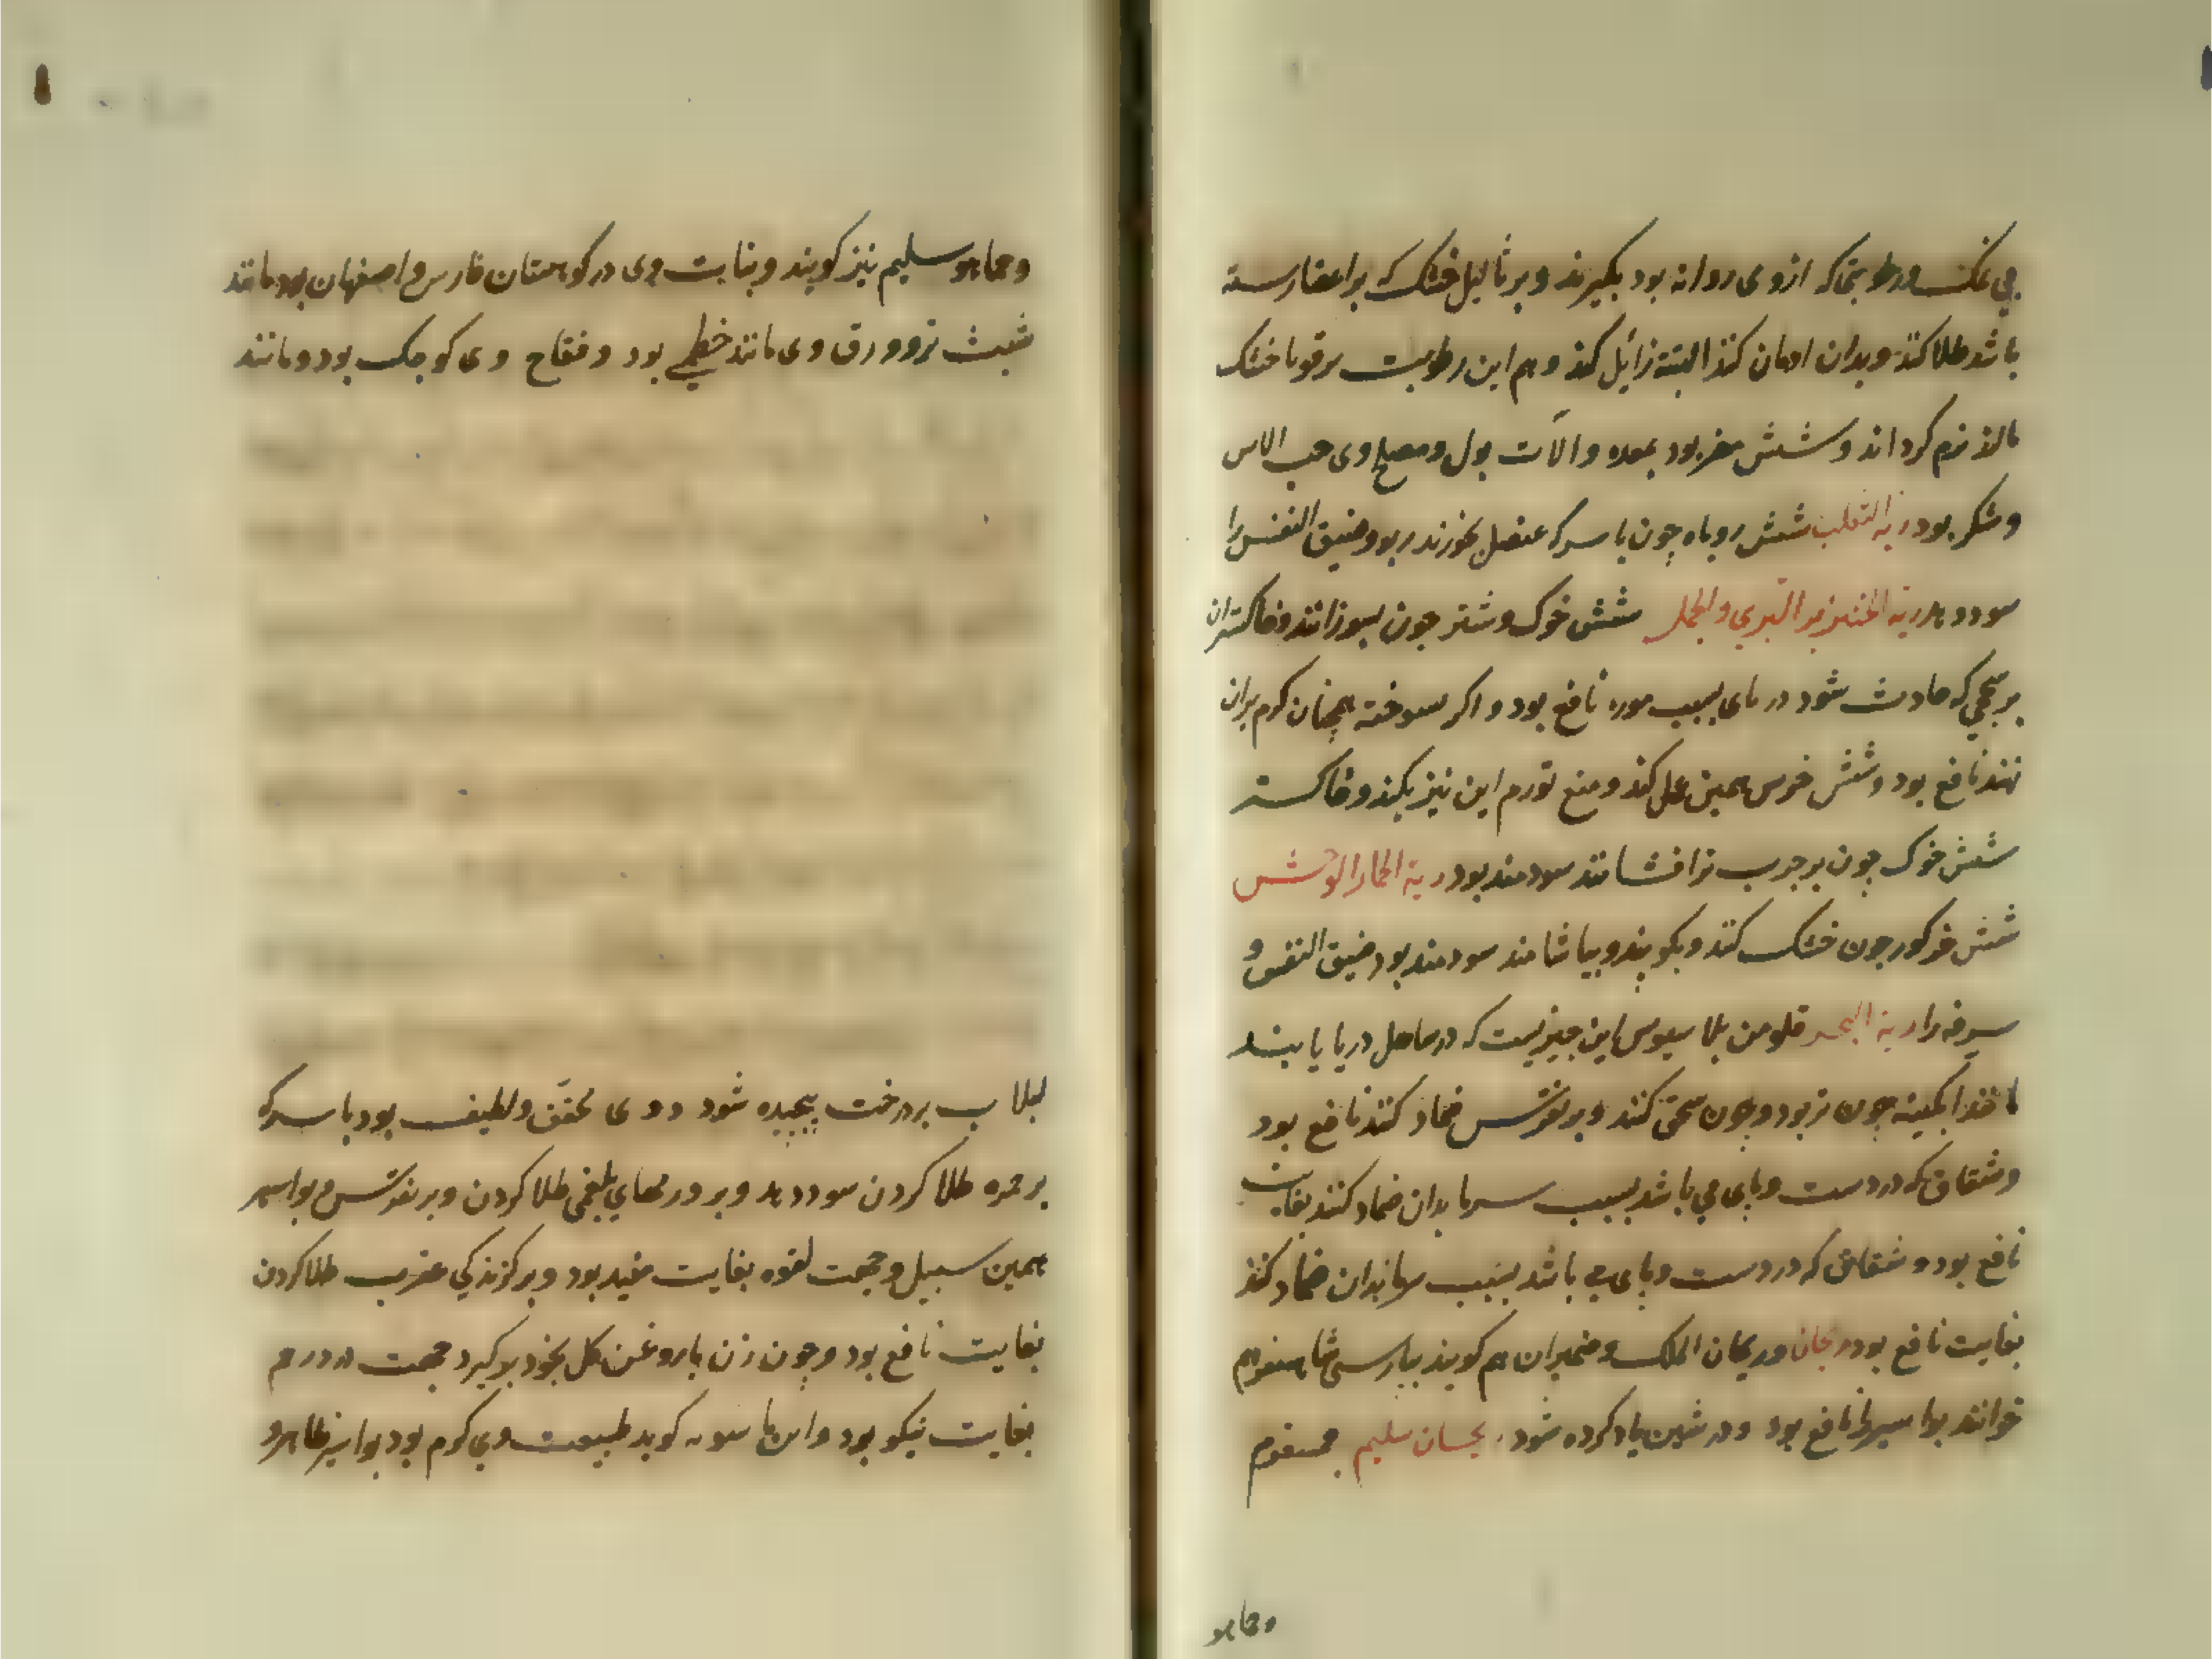 بی نمک و رطوبتی که ازوی روانه بود بکیرند و بر ثالیل خشک که بر اعضا رسته
باشد طلا کنند و بدان ادمان کنند البته زائل کند و هم این رطوبت بر قوبا خشک
مالند نرم کرداند و شش مضر بود بمعده و الات بول و مصلح وی حب الاس
و شکر بود ریه الثعلب شش روباه چون با سرکه عنصل بخورند ربو و ضیق النفس را
سود دهد ریه الخنزیر البری والجمل شش خوک و شتر چون بسوزانند و خاکستر ان
بر سحجی که حادث شود در پای بسبب موزه نافع بود و اکر سوخته همچنان کرم بران
نهند نافع بود و شش خرس همین عمل کند و منع تورم این نیز بکند و خاکستر
شش خوک چون بر جرب تر افشانند سودمند بود ریه الحمار الوحش
شش خرکور چون خشک کنند و بکوبند و بیاشامند سودمند بود ضیق النفس و
سرفه را ریه البحر قلومن بلاسیوس این چیزیست که در ساحل دریا یابند
مانند ابکینه چون تر بود و چون سحق کنند و بر نقرس ضماد کنند نافع بود
و شقاق که در دست و پای می باشد بسبب سرما بدان ضماد کنند بغایت
نافع بود و شقاق که در دست و پای می باشد بسبب سرما بدان ضماد کنند
بغایت نافع بود ریحان و ریحان الملک و ضمیران هم کویند بپارسی شاهسفرم
خوانند بواسیر را نافع بود و در شین یاد کرده شود ریحان سلیم جمسفرم
و جماهو
و جماهو سلیم نیز کویند و نبات وی در کوهستان فارس و اصفهان بود مانند
شبث تر و ورق وی مانند خطمی بود و فقاح وی کوچک بود و مانند
لبلاب بر درخت پیچیده شود و وی محقق و لطیف بود با سرکه
بر حمره طلا کردن سود دهد و بر ورمهای بلغمی طلا کردن و بر نقرس و بواسیر
همین سبیل و جهت لقوه بغایت مفید بود و بر کزندکی عقرب طلا کردن
بغایت نافع بود و چون زن با روغن کل بخود برکیرد جهت درد رحم
بغایت نیکو بود و ابن ماسویه کوید طبیعت وی کرم بود بواسیر ظاهر و